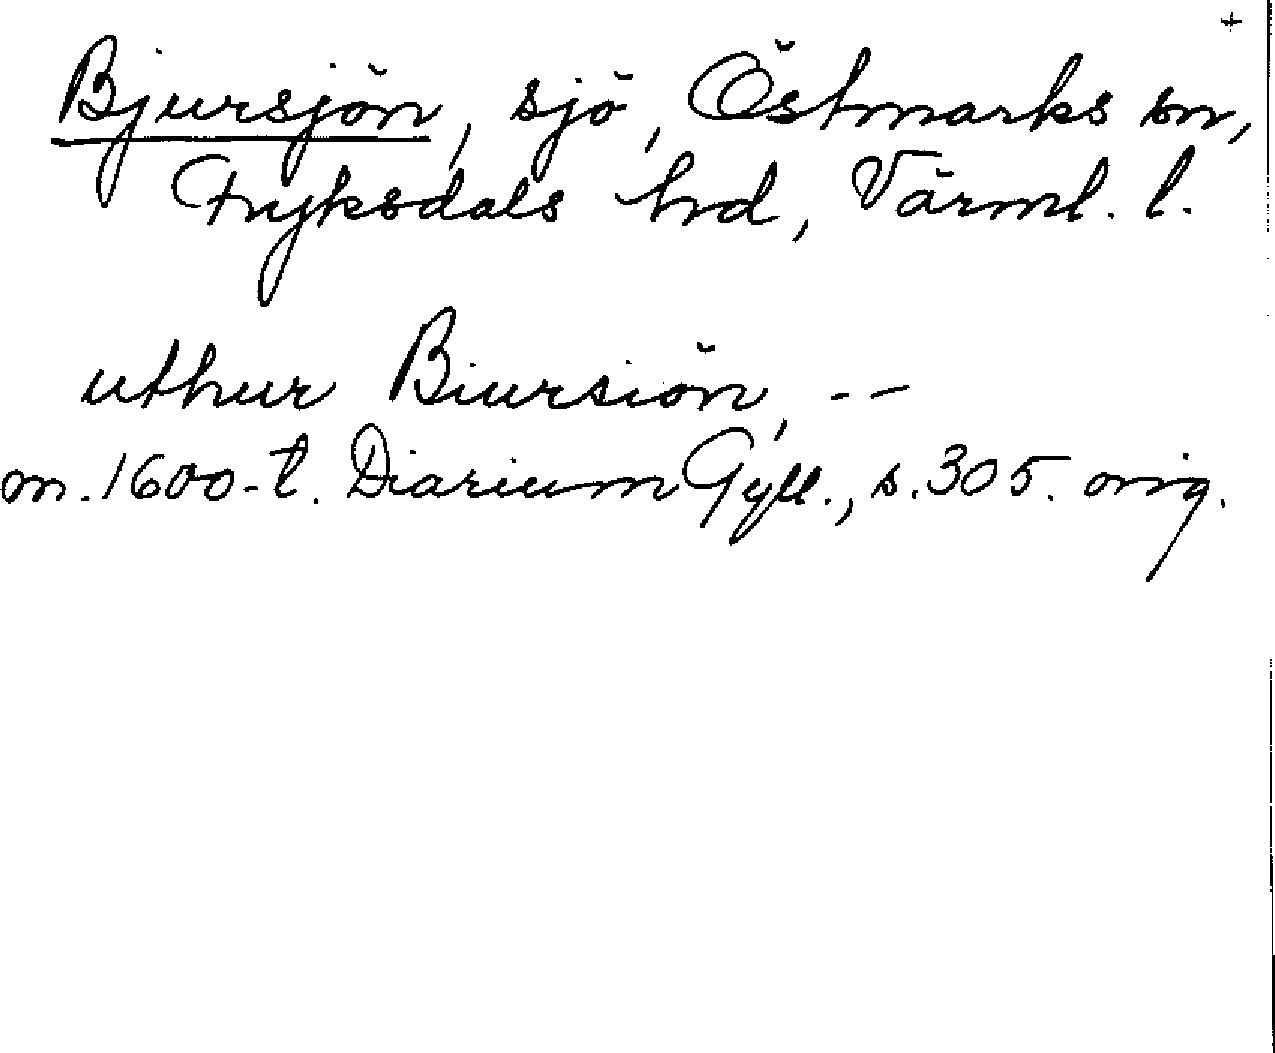 +
Bjursjön, sjö, Östmarks sn,
Fryksdals hrd, Värml. l.
uthur Biursiön, --
m. 1600-t. Diarium Gyll., s. 305. orig.